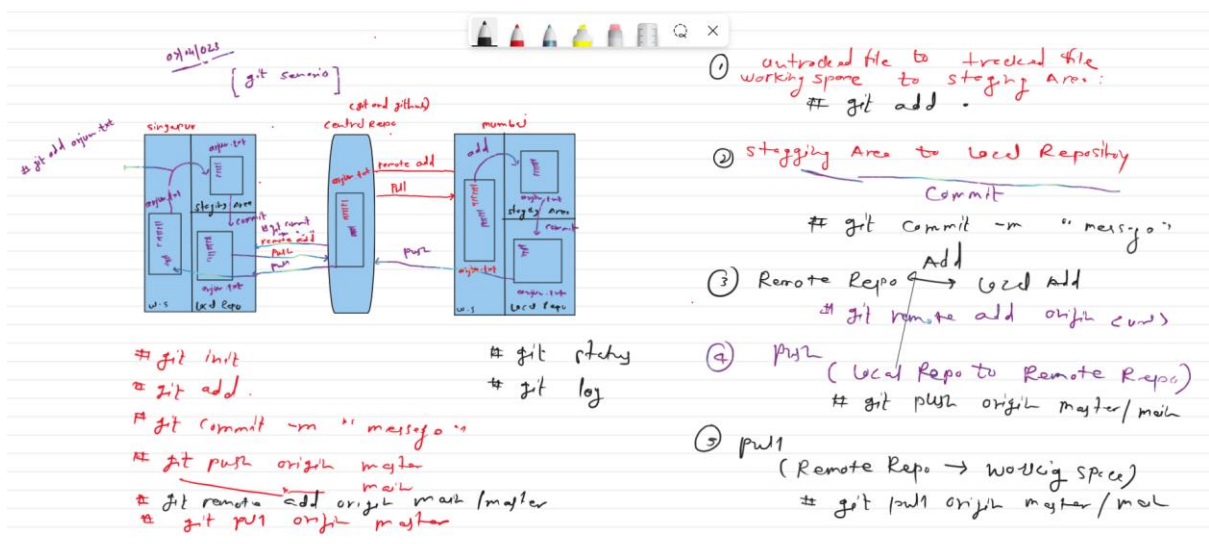 07/04/023
[git senario]
(git and github)
singapur
central Repo
mumbai
# git add anjum.txt
anjum.txt
anjum.txt
staging Area
commit
# git commit
remote add
push
pull
anjum.txt
w.s
local Repo
anjum.txt
remote add
pull
push
add
anjum.txt
staging Area
commit
anjum.txt
anjum.txt
w.s
local Repo
# git init
# git add.
# git commit -m "message"
# git push origin master
main
# git remote add origin main/master
# git pull origin master
# git status
# git log
① untracked file to tracked file
working space to staging Area:
# git add .
② stagging Area to local Repository
Commit
# git commit -m "message"
Add
③ Remote Repo local Add
# git remote add origin <url>
④ push
(local Repo to Remote Repo)
# git push origin master/main
⑤ pull
(Remote Repo → working space)
# git pull origin master/main